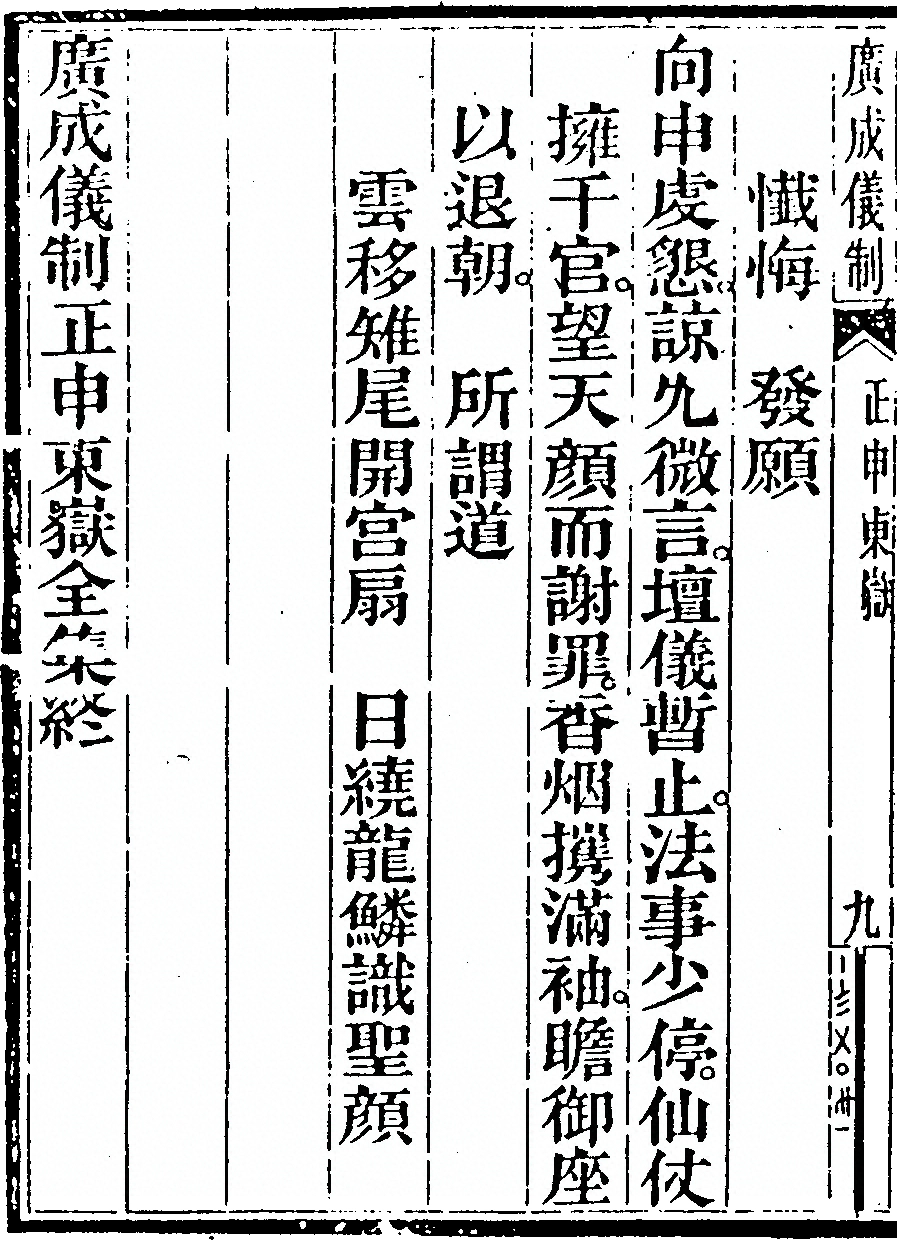 廣成儀制 正申東嶽 九
懺悔 發願
向申虔懇諒允微言。壇儀暫止。法事少停。仙仗
擁千官。望天顏而謝罪。香烟携滿袖。瞻御座
以退朝。 所謂道
雲移雉尾開宮扇 日繞龍鱗識聖顏
廣成儀制正申東嶽全集終